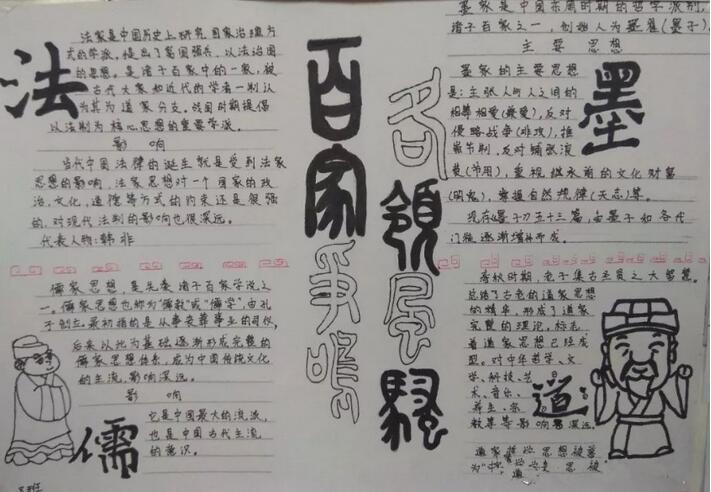 法
法家是中国历史上研究国家治理方
式的学派，提出了富国强兵、以法治国
的思想。是诸子百家中的一家，被
古代大家和近代的学者一别认
为其为道家分支。战国时期提倡
以法制为核心思想的重要学派。
影响
当代中国法律的诞生就是受到法家
思想的影响，法家思想对一个国家的政
治，文化，道德等方式的约束还是很强
的，对现代法制的影响也很深远。
代表人物：韩非
儒家思想，是先秦诸子百家学说之
一。儒家思想也称为“儒教”或“儒学”，由孔
子创立。最初指的是从事丧葬事业的司仪，
后来以此为基础逐渐形成完整的
儒家思想体系，成为中国传统文化
的主流，影响深远。
影响
它是中国最大的流派，
也是中国古代主流
的意识。
儒
百家争鸣
各领风骚
墨家是中国东周时期的哲学派别，
诸子百家之一，创始人为墨翟(墨子)。
主要思想
墨
墨家的主要思想
是：主张人与人之间的
相等相爱(兼爱)，反对
侵略战争(非攻)，推
崇节别，反对铺张浪
费(节用)，重视继承前的文化财富
(明鬼)，掌握自然规律(天志)等。
现存《墨子》五十三篇，由墨子和各代
门徒逐渐增补而成。
春秋时期，老子集古圣贤之大智慧。
总结了古老的道家思想
的精华，形成了道家
完整的理论。标志
着道家思想已经成
型。对中华哲学、文
学、科技、艺
术、音乐、
养生、宗
教等等影响着深远。
道
道家哲学思想被尊
为
班